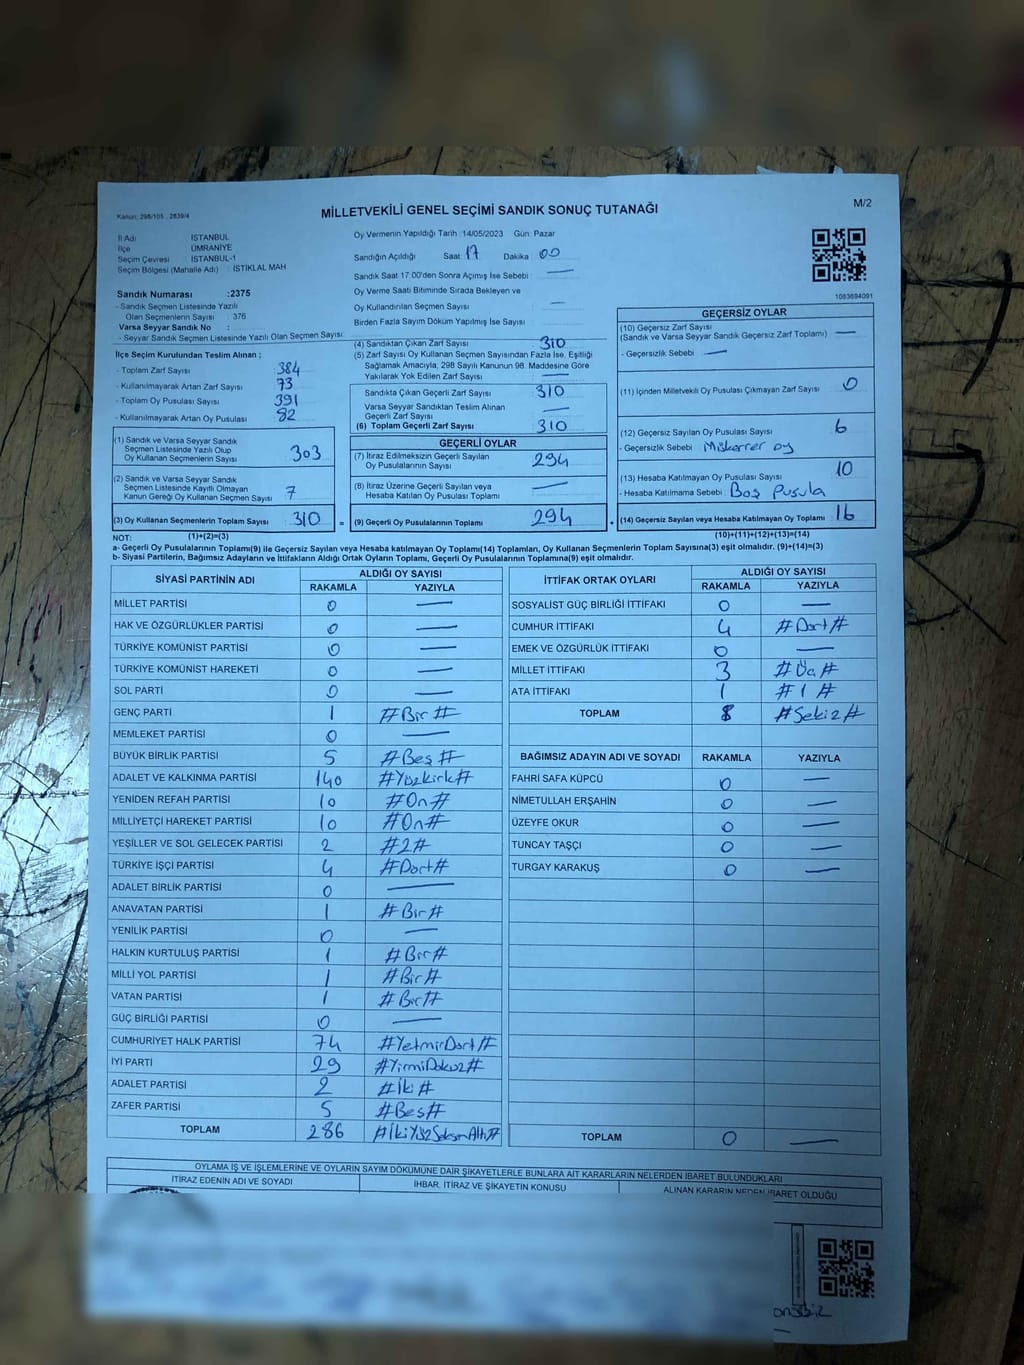 Kanun: 298/105 , 2839/4
MİLLETVEKİLİ GENEL SEÇİMİ SANDIK SONUÇ TUTANAĞI
M/2
İl Adı : İSTANBUL
İlçe : ÜMRANİYE
Seçim Çevresi : İSTANBUL-1
Seçim Bölgesi (Mahalle Adı) : İSTİKLAL MAH
Oy Vermenin Yapıldığı Tarih :14/05/2023 Gün: Pazar
Sandığın Açıldığı Saat : 17 Dakika : 00
Sandık Saat 17:00'den Sonra Açımış İse Sebebi : —
Oy Verme Saati Bitiminde Sırada Bekleyen ve
Oy Kullandırılan Seçmen Sayısı : —
Birden Fazla Sayım Döküm Yapılmış İse Sayısı :
1083694091
Sandık Numarası :2375
- Sandık Seçmen Listesinde Yazılı
Olan Seçmenlerin Sayısı : 376
Varsa Seyyar Sandık No :
- Seyyar Sandık Seçmen Listesinde Yazılı Olan Seçmen Sayısı:
İlçe Seçim Kurulundan Teslim Alınan ;
- Toplam Zarf Sayısı : 384
- Kullanılmayarak Artan Zarf Sayısı : 73
- Toplam Oy Pusulası : 391
- Kullanılmayarak Artan Oy Pusulası : 82
(1) Sandık ve Varsa Seyyar Sandık
Seçmen Listesinde Yazılı Olup
Oy Kullanan Seçmenlerin Sayısı 303
(2) Sandık ve Varsa Seyyar Sandık
Seçmen Listesinde Kayıtlı Olmayan
Kanun Gereği Oy Kullanan Seçmen Sayısı 7
(3) Oy Kullanan Seçmenlerin Toplam Sayısı 310 =
(4) Sandıktan Çıkan Zarf Sayısı 310
(5) Zarf Sayısı Oy Kullanan Seçmen Sayısından Fazla İse, Eşitliği
Sağlamak Amacıyla, 298 Sayılı Kanunun 98. Maddesine Göre
Yakılarak Yok Edilen Zarf Sayısı —
Sandıkta Çıkan Geçerli Zarf Sayısı 310
Varsa Seyyar Sandıktan Teslim Alınan
Geçerli Zarf Sayısı —
(6) Toplam Geçerli Zarf Sayısı 310
GEÇERLİ OYLAR
(7) İtiraz Edilmeksizin Geçerli Sayılan
Oy Pusulalarının Sayısı 294
(8) İtiraz Üzerine Geçerli Sayılan veya
Hesaba Katılan Oy Pusulası Toplamı —
(9) Geçerli Oy Pusulalarının Toplamı 294 +
GEÇERSİZ OYLAR
(10) Geçersiz Zarf Sayısı
(Sandık ve Varsa Seyyar Sandık Geçersiz Zarf Toplamı) —
- Geçersizlik Sebebi : —
(11) İçinden Milletvekili Oy Pusulası Çıkmayan Zarf Sayısı 0
(12) Geçersiz Sayılan Oy Pusulası Sayısı 6
- Geçersizlik Sebebi : Mükerrer oy
(13) Hesaba Katılmayan Oy Pusulası Sayısı 10
- Hesaba Katılmama Sebebi : Boş Pusula
(14) Geçersiz Sayılan veya Hesaba Katılmayan Oy Toplamı 16
NOT: (1)+(2)=(3) (10)+(11)+(12)+(13)=(14)
a- Geçerli Oy Pusulalarının Toplamı(9) ile Geçersiz Sayılan veya Hesaba katılmayan Oy Toplamı(14) Toplamları, Oy Kullanan Seçmenlerin Toplam Sayısına(3) eşit olmalıdır. (9)+(14)=(3)
b- Siyasi Partilerin, Bağımsız Adayların ve İttifakların Aldığı Ortak Oyların Toplamı, Geçerli Oy Pusulalarının Toplamına(9) eşit olmalıdır.
SİYASİ PARTİNİN ADI ALDIĞI OY SAYISI
RAKAMLA YAZIYLA
MİLLET PARTİSİ 0 —
HAK VE ÖZGÜRLÜKLER PARTİSİ 0 —
TÜRKİYE KOMÜNİST PARTİSİ 0 —
TÜRKİYE KOMÜNİST HAREKETİ 0 —
SOL PARTİ 0 —
GENÇ PARTİ 1 #Bir#
MEMLEKET PARTİSİ 0 —
BÜYÜK BİRLİK PARTİSİ 5 #Beş#
ADALET VE KALKINMA PARTİSİ 140 #Yüzkırk#
YENİDEN REFAH PARTİSİ 10 #On#
MİLLİYETÇİ HAREKET PARTİSİ 10 #On#
YEŞİLLER VE SOL GELECEK PARTİSİ 2 #2#
TÜRKİYE İŞÇİ PARTİSİ 4 #Dört#
ADALET BİRLİK PARTİSİ 0 —
ANAVATAN PARTİSİ 1 #Bir#
YENİLİK PARTİSİ 0 —
HALKIN KURTULUŞ PARTİSİ 1 #Bir#
MİLLİ YOL PARTİSİ 1 #Bir#
VATAN PARTİSİ 1 #Bir#
GÜÇ BİRLİĞİ PARTİSİ 0 —
CUMHURİYET HALK PARTİSİ 74 #YetmirDört#
İYİ PARTİ 29 #YirmiDokuz#
ADALET PARTİSİ 2 #İki#
ZAFER PARTİSİ 5 #Beş#
TOPLAM 286 #İkiYüzSeksenAltı#
İTTİFAK ORTAK OYLARI ALDIĞI OY SAYISI
RAKAMLA YAZIYLA
SOSYALİST GÜÇ BİRLİĞİ İTTİFAKI 0 —
CUMHUR İTTİFAKI 4 #Dört#
EMEK VE ÖZGÜRLÜK İTTİFAKI 0 —
MİLLET İTTİFAKI 3 #Üç#
ATA İTTİFAKI 1 #1#
TOPLAM 8 #Sekiz#
BAĞIMSIZ ADAYIN ADI VE SOYADI RAKAMLA YAZIYLA
FAHRİ SAFA KÜPCÜ 0 —
NİMETULLAH ERŞAHİN 0 —
ÜZEYFE OKUR 0 —
TUNCAY TAŞÇI 0 —
TURGAY KARAKUŞ 0 —
TOPLAM 0 —
OYLAMA İŞ VE İŞLEMLERİNE VE OYLARIN SAYIM DÖKÜMÜNE DAİR ŞİKAYETLERLE BUNLARA AİT KARARLARIN NELERDEN İBARET BULUNDUKLARI
İTİRAZ EDENİN ADI VE SOYADI İHBAR, İTİRAZ VE ŞİKAYETİN KONUSU ALINAN KARARIN NEDEN İBARET OLDUĞU